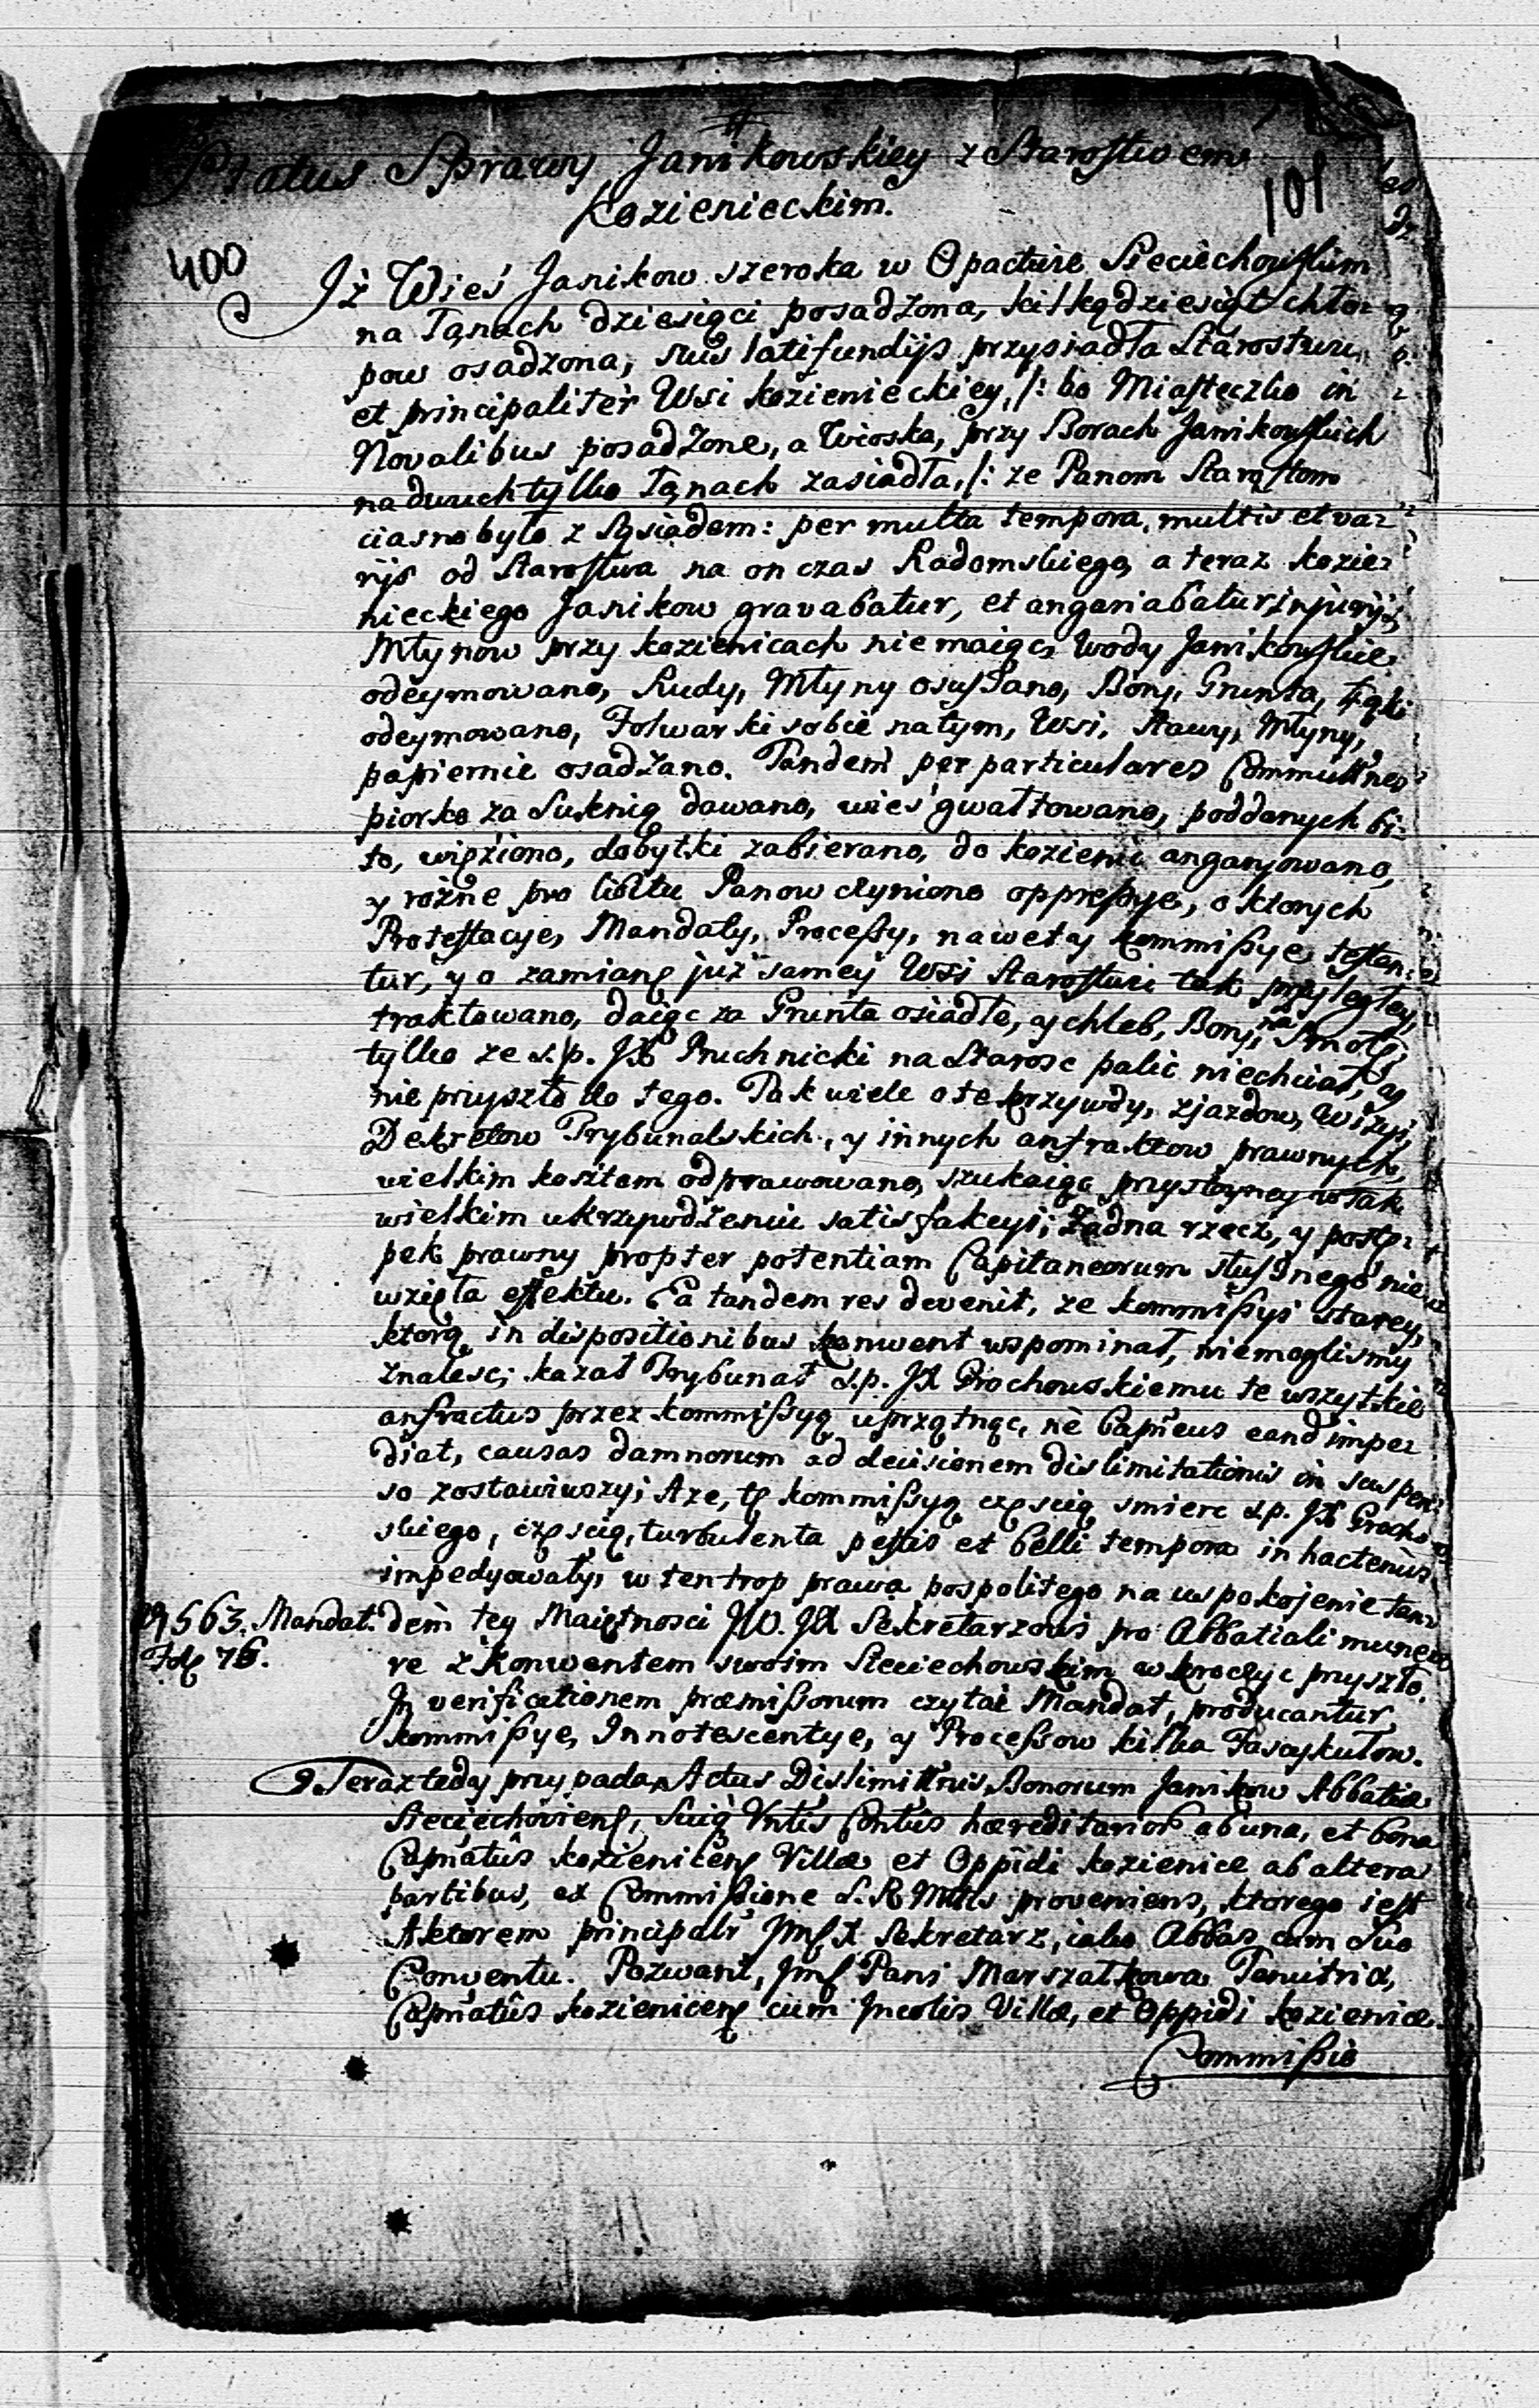 Status Sprawy Janikowskiey z Starostwem
Kozienieckim.
101
400
Iż Wieś Janikow szeroka w Opactwie Sieciechowskim
na Łąnach dziesiąci posadzona, kilkądziesiąt chło-
pow osadzona, suis latifundijs przysiadła Starostwu,
et principaliter Wsi kozienieckiey, /: bo Miasteczko in
Novalibus posadzone, a Wioska, przy Borach Janikowskich
na dwuch tylko Łąnach zasiadła, /: ze Panom Starostom
ciasno było z Sąsiadem: per multa tempora, multis et va-
rijs od Starostwa na on czas Radomskiego, a teraz kozie-
nieckiego Janikow gravabatur, et angariabatur injurijs,
Młynow przy kozienicach niemaiąc, Wody Janikowskie
odeymowano, Rudy, Młyny osuszano, Bory, Grunta, Łąki
odeymowano, Folwarki sobie na tym, Wsi, Stawy, Młyny,
papiernie osadzano. Tandem per particulares Committnes
piorko za Suknią dawano, wieś gwałtowano, poddanych bi-
to, więziono, dobytki zabierano, do kozienic angaryowano,
y rożne pro libitu Panow czyniono oppressye, o ktorych
Protestacye, Mandaty, Processy, nawet y kommissye testan-
tur, y o zamianę już samey Wsi Starostwu tak przyległey,
traktowano, daiąc za Grunta osiadłe, y chleb, Bory, na Smołę,
tylko ze s.p. JX Pruchnicki na Starosc palic niechciał, y
nie przyszło do tego. Tak wiele o te krzywdy, zjazdow, Wizyi,
Dekretow Trybunalskich, y innych anfraktow prawnych,
wielkim kosztem odprawowano, szukaiąc przystoyney w tak
wielkim ukrzywdzeniu satisfakcyi; Żadna rzecz, y postę-
pek prawny propter potentiam Capitaneorum słusznego nie
wzięła effektu. Ea tandem res devenit, ze kommissyi starey,
ktorą in dispositionibus konwent wspominał, niemoglismy
znalesc; kazał Trybunał s.p. JX Grochowskiemu te wszytkie
anfractus przez kommissyą uprzątnąc, ne Capneus eand impe-
diat, causas damnorum ad decisionem dislimitationis in suspen-
so zostawiwszy; A ze, tę kommissyą częscią smierc s.p. JX Grocho-
skiego, częscią, turbulenta pestis et belli tempora in hactenus
impedyowały, w ten trop prawa pospolitego na uspokojenie tan-
563. Mandat. dem tey Maiętnosci JW. JX Sekretarzowi pro Abbatiali mune-
Fol 76. re z Konwentem swoim Sieciechowskim wkroczyc przyszło.
In verificationem præmissorum czytac Mandat, producantur
kommissye, Innotescentye, y Processow kilka Fascykułow.
Teraz tedy przypada Actus Dislimittnis Bonorum Janikow Abbatiæ
Sieciechoviens, Suiq Vntis Contus hæreditarior ab una, et bona
Capnatûs koziencens Villæ et Oppidi kozienice ab altera
partibus, ex Commissione S. R. Mttis proveniens, ktorego iest
Aktorem principalr Jms X Sekretarz, iako Abbas cum Suo
Conventu. Pozwani, Jms Pani Marszałkowa Tenutrix,
Capnatûs koziencens cum Incolis Villæ, et Oppidi kozienice.
Commissio